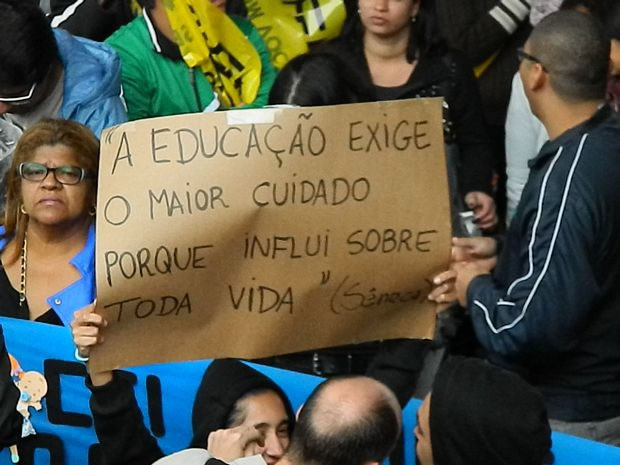 "A EDUCAÇÃO EXIGE
O MAIOR CUIDADO
PORQUE INFLUI SOBRE
TODA VIDA" (Sêneca)